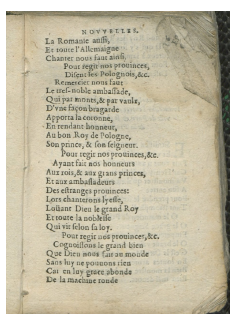 NOVVELLES.
La Romanie aussi,
Et toute l'Allemaigne
Chanter nous faut ainsi,
Pour regir nos prouinces,
Disent les Polognois, &c.
Remercier nous faut
Le tres-noble ambassade,
Qui par monts, & par vaulx,
D'vne façon bragarde
Apporta la coronne,
En rendant honneur,
Au bon Roy de Pologne,
Son prince, & son seigneur.
Pour regir nos prouinces, &c.
Ayant fait nos honneurs
Aux rois, & aux grans princes,
Et aux ambassadeurs
Des estranges prouinces:
Lors chanterons lyesse,
Loüant Dieu le grand Roy
Et toute la noblesse
Qui vit selon sa loy.
Pour regir nos prouinces, &c.
Cognoissons le grand bien
Que Dieu nous fait au monde
Sans luy ne pouuons rien
Car en luy grace abonde
De la machine ronde